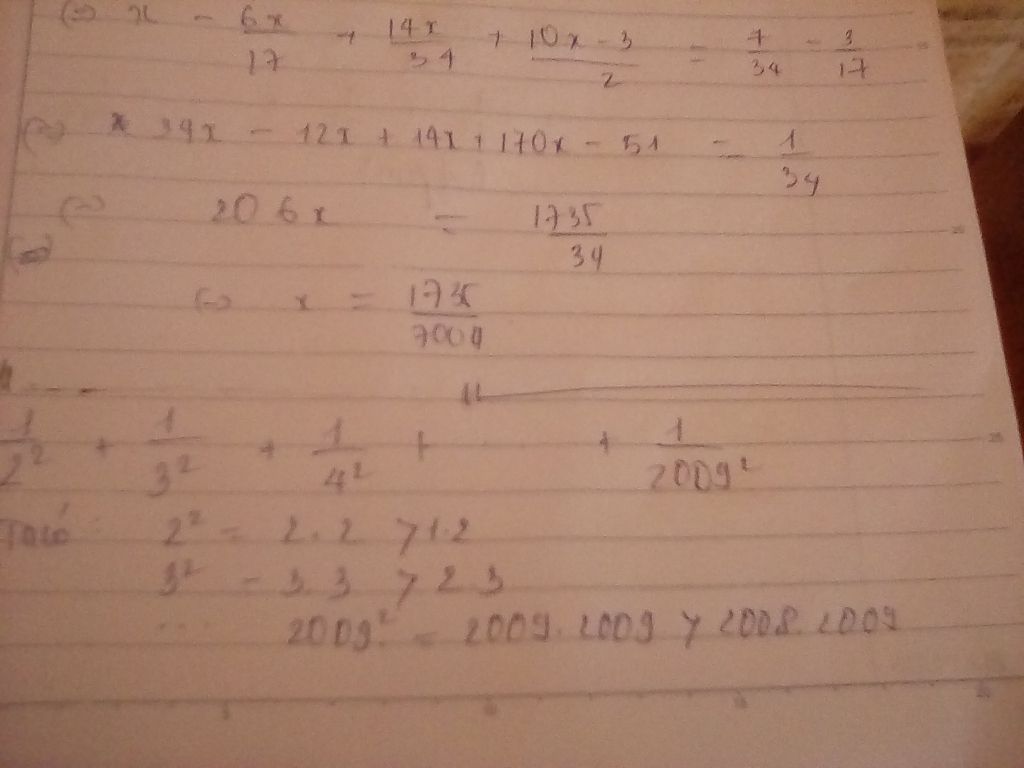 (=) x - 6x/17 + 14x/34 + 10x-3/2 = 7/34 - 3/17
(=) 34x - 12x + 14x + 170x - 51 = 1/34
(=) 206x = 1735/34
(=) x = 1735/7004
1/2² + 1/3² + 1/4² + + 1/2009²
Ta có: 2² = 2.2 > 1.2
3² = 3.3 > 2 3
... 2009² = 2009.2009 > 2008.2009